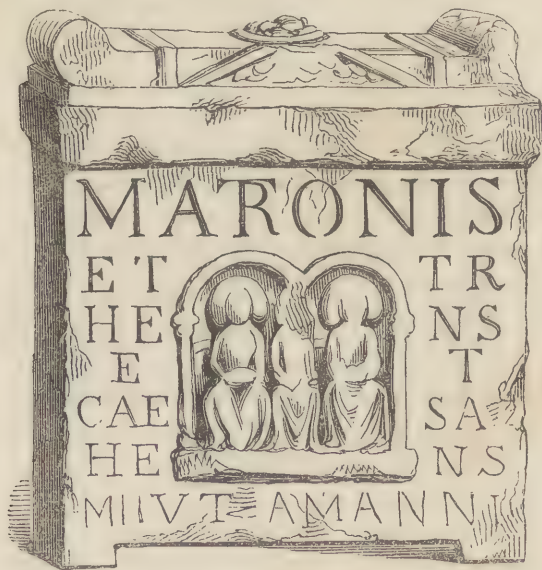 MARONIS
ET TR
HE NS
E T
CAE SA
HE NS
MIIVT AMANNI